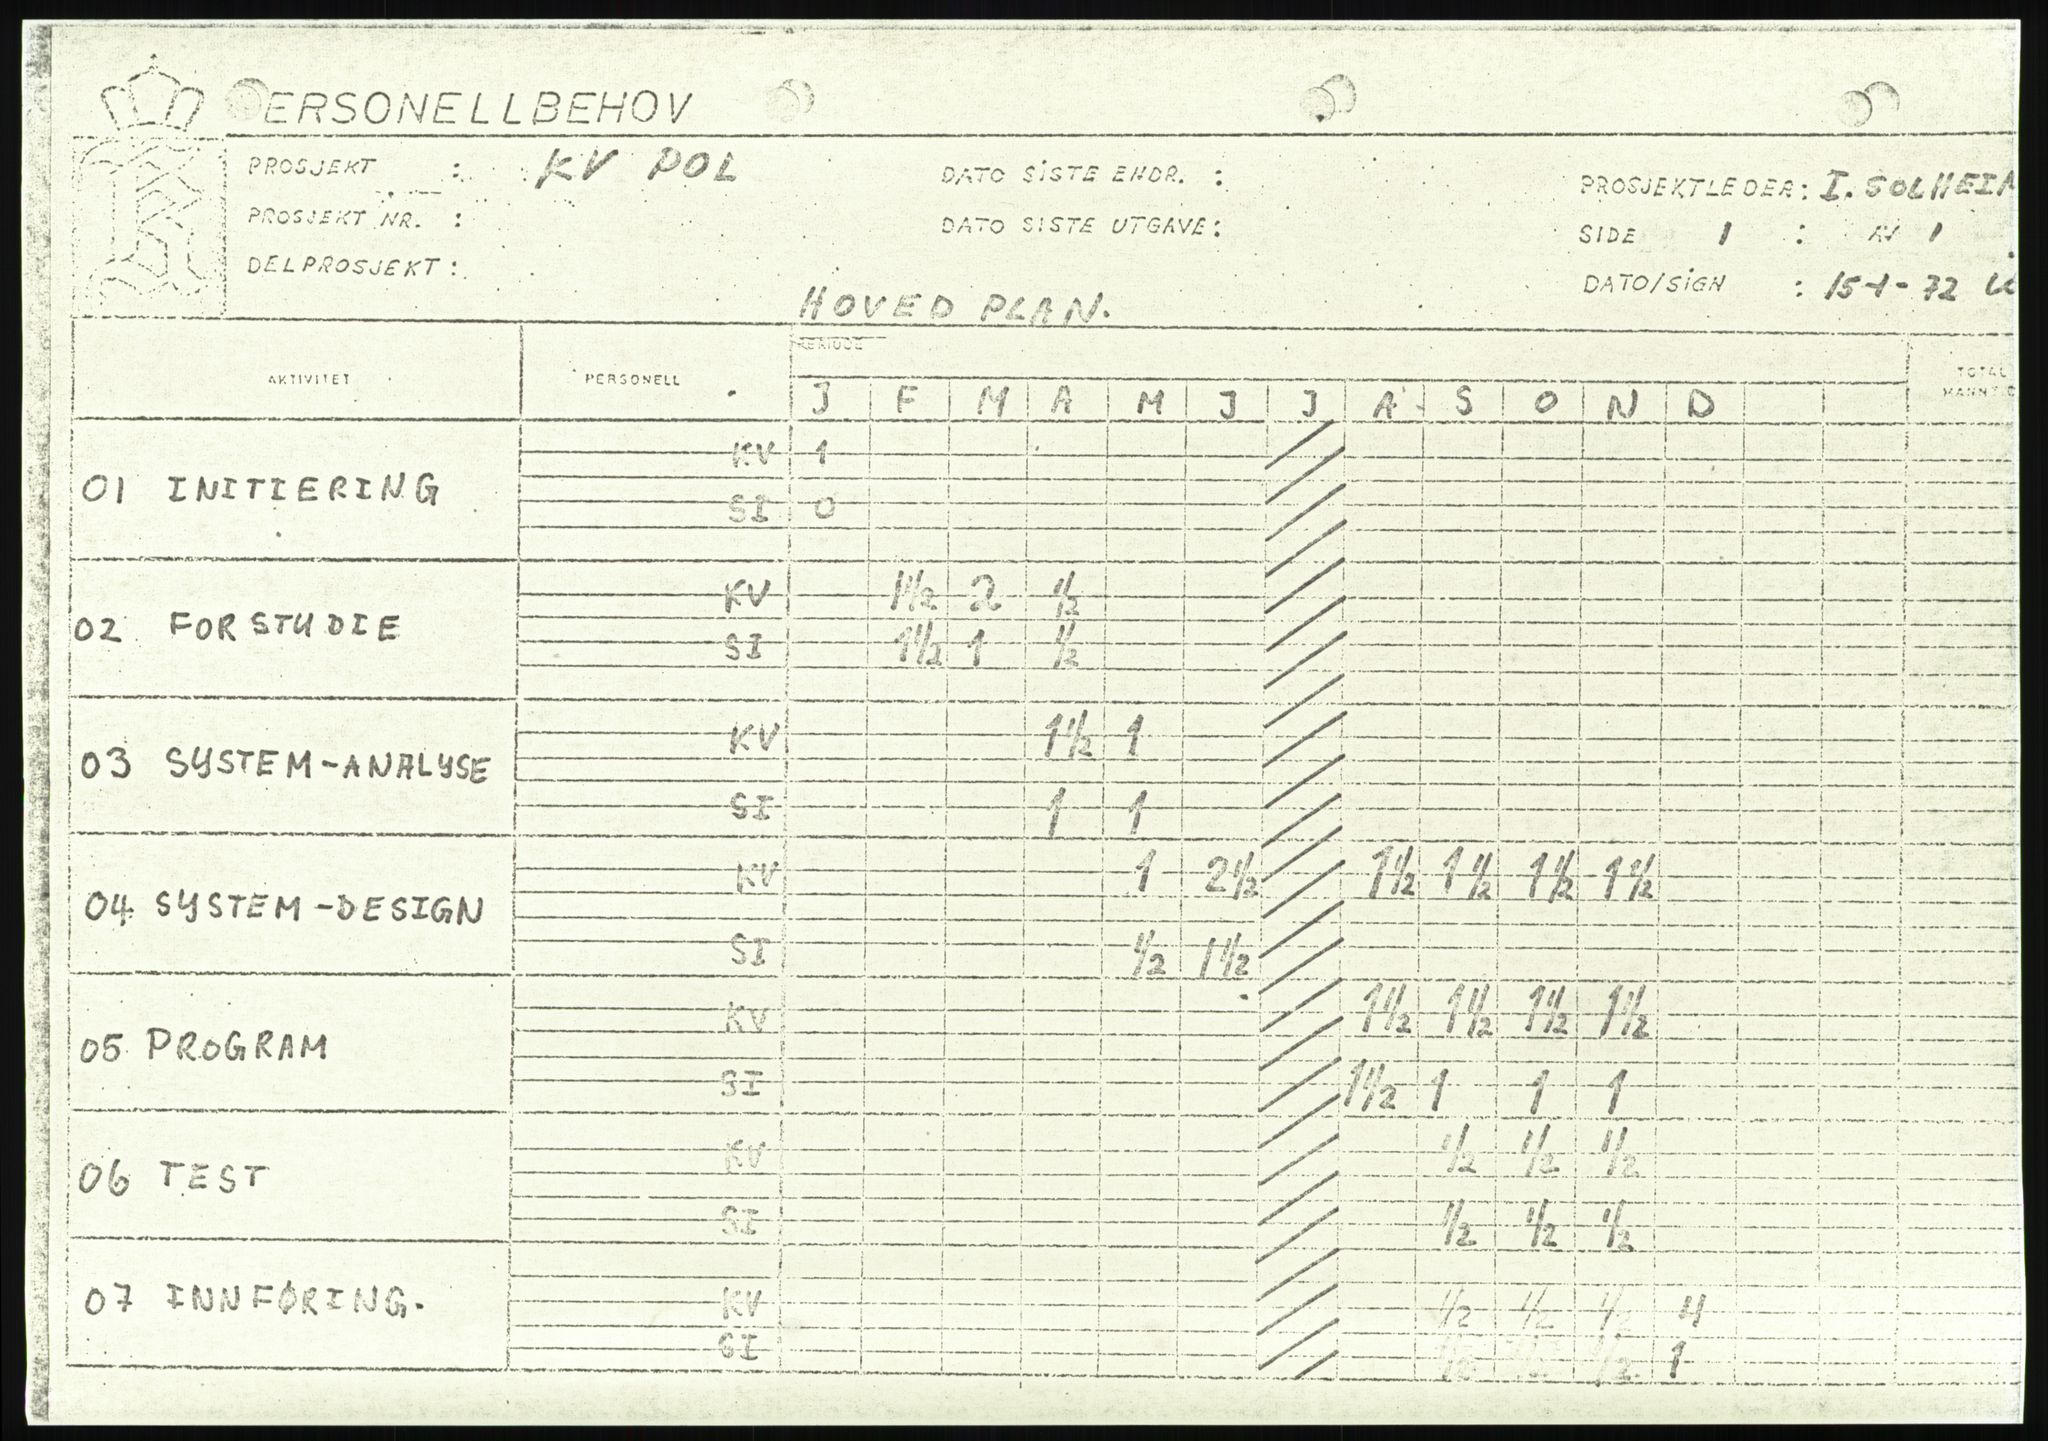 PERSONELLBEHOV
PROSJEKT : KV POL DATO SISTE ENDR. : PROSJEKTLEDER: I. SOLHEIM
PROSJEKT NR. : DATO SISTE UTGAVE: SIDE 1 : AV 1
DELPROSJEKT: DATO/SIGN : 15-1-72
HOVED PLAN.
PERIODE
AKTIVITET PERSONELL TOTAL
J F M A M J J A S O N D
01 INITIERING
KV 1
SI 0
02 FORSTUDIE
KV 1 1/2 2 1/2
SI 1 1/2 1 1/2
03 SYSTEM-ANALYSE
KV 1 1/2 1
SI 1 1
04 SYSTEM-DESIGN
KV 1 2 1/2 1 1/2 1 1/2 1 1/2 1 1/2
SI 1/2 1 1/2
05 PROGRAM
KV 1 1/2 1 1/2 1 1/2 1 1/2
SI 1 1/2 1 1 1
06 TEST
KV 1/2 1/2 1/2
SI 1/2 1/2 1/2
07 INNFØRING.
KV 1/2 1/2 1/2 4
SI 1/2 1/2 1/2 1